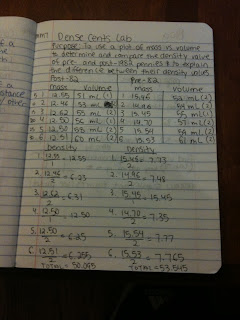 Dense Cents Lab
Purpose: To use a plot of mass vs. volume
to determine and compare the density value
of pre- and post-1982 pennies & to explain
the difference between their density values
Post-82 Pre-82
mass volume mass volume
12.55 51 mL (1) 1 15.46 52 mL (2)
2 12.46 53 mL 2 14.96 54 mL (2)
12.62 55 mL (2) 3 15.45 55 mL (1)
12.50 56 mL (1) 4 14.70 57 mL (2)
12.50 58 mL (2) 5 15.54 59 mL (2)
12.51 60 mL (2) 6 15.53 61 mL (2)
Density Density
1. 12.55/1 = 12.55 1. 15.46/2 = 7.73
2. 12.46/2 = 6.23 2. 14.96/2 = 7.48
3. 12.62/2 = 6.31 3. 15.45/1 = 15.45
4. 12.50/1 = 12.50 4. 14.70/2 = 7.35
5. 12.50/2 = 6.25 5. 15.54/2 = 7.77
6. 12.51/2 = 6.255 6. 15.53/2 = 7.765
TOTAL = 50.095 TOTAL = 53.545